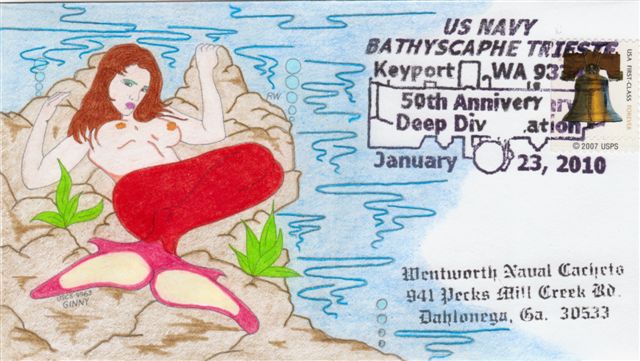 US NAVY
BATHYSCAPHE TRIESTE
Keyport WA
50th
Deep
January 23, 2010
USA FIRST-CLASS
© 2007 USPS
RW
GINNY
Wentworth Naval Cachets
941 Pecks Mill Creek Rd.
Dahlonega, Ga. 30533